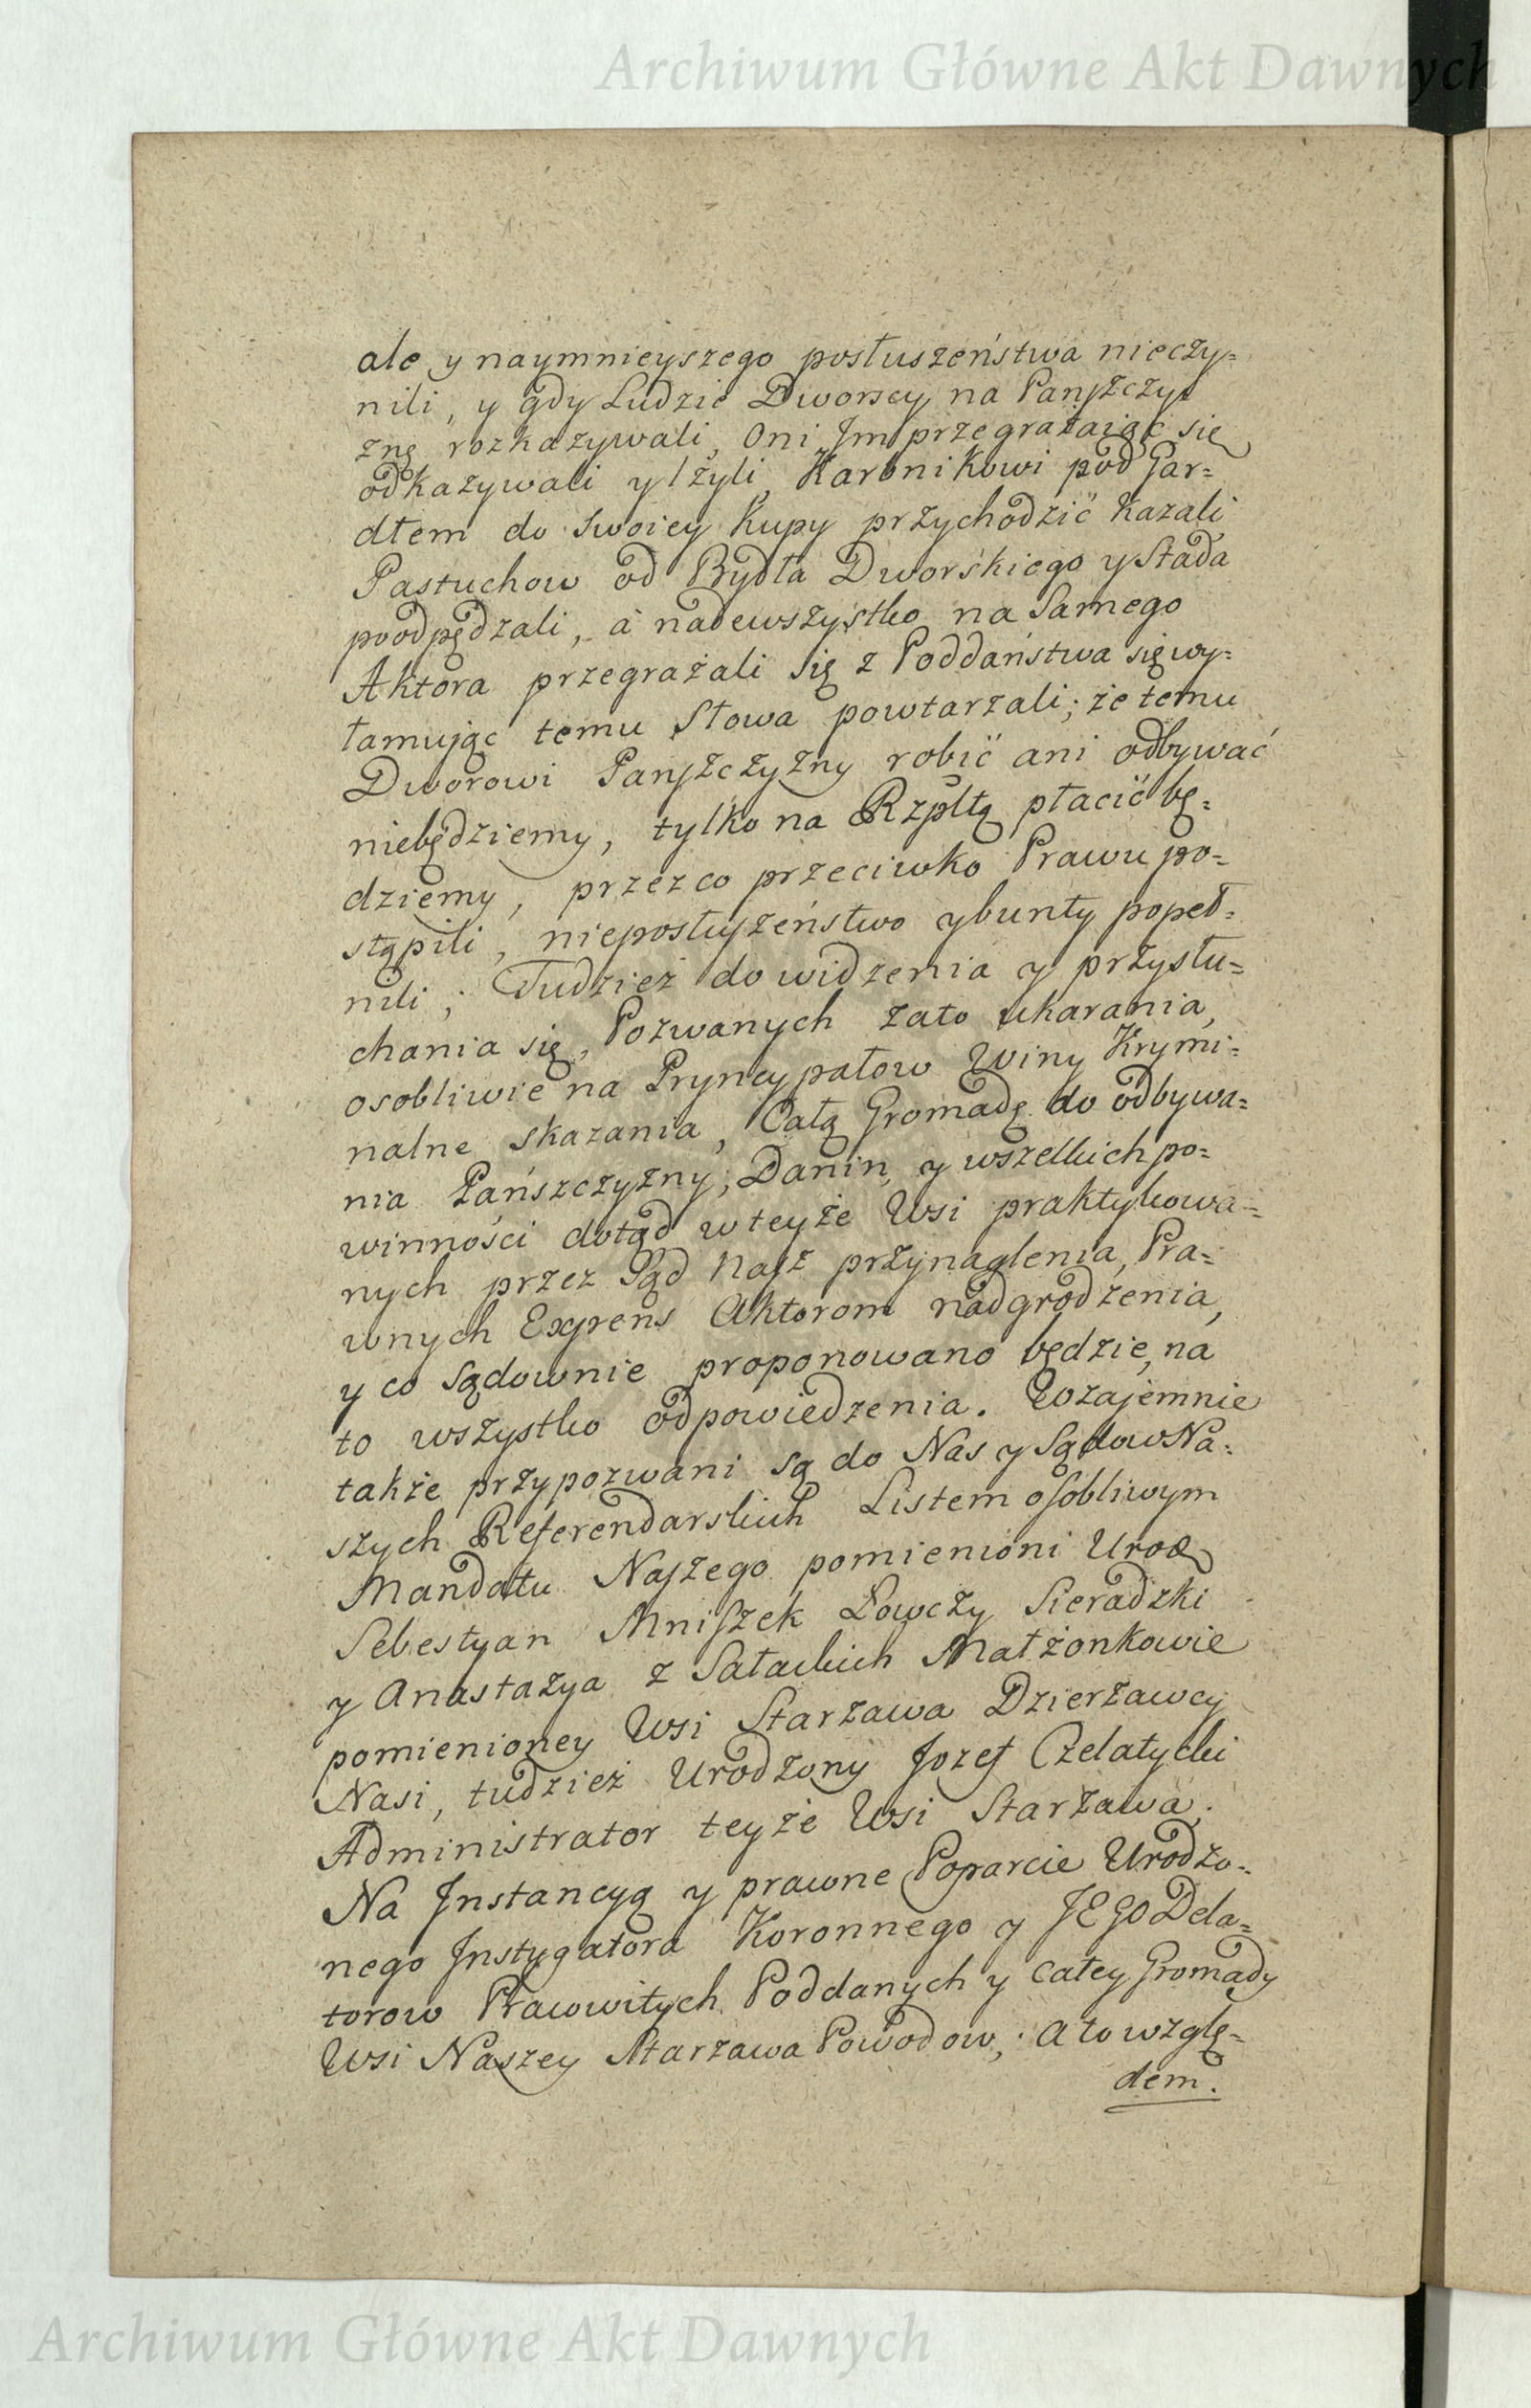 Archiwum Główne Akt Dawnych
ale y naymnieyszego posłuszeństwa nieczy=
nili, y gdy Ludzie Dworscy na Panszczy
znę rozkazywali, Oni Im przegrażaiąc się
odkazywali y lżyli, Karbnikowi pod Gar=
dłem do swoiey Kupy przychodzić Kazali
Pastuchow od Bydła Dworskiego y Stada
poodpędzali, a nadewszystko na Samego
Aktora przegrażali się z Poddaństwa się wy=
łamując temu Słowa powtarzali; że temu
Dworowi Panszczyzny robić ani odbywać
niebędziemy, tylko na Rzpltą płacić bę=
dziemy, przez co przeciwko Prawu po=
stąpili, nieposłuszeństwo y bunty popeł=
nili; Tudzież do widzenia y przysłu=
chania się, Pozwanych zato ukarania,
osobliwie na Pryncypałow Winy Krymi=
nalne skazania, Całą Gromadę do odbywa=
nia Pańszczyzny, Danin, y wszelkich po=
winności dotąd w teyże Wsi praktykowa=
nych przez Sąd Nasz przynaglenia, Pra=
wnych Expens Aktorom nadgrodzenia,
y co sądownie proponowano będzie, na
to wszystko odpowiedzenia. Wzajemnie
także przypozwani są do Nas y Sądow Na=
szych Referendarskich Listem osobliwym
Mandatu Naszego pomienioni Urod
Sebestyan Mniszek Łowczy Sieradzki
y Anastazya z Sałackich Małżonkowie
pomienioney Wsi Starzawa Dzierzawcy
Nasi, tudzież Urodzony Jozef Czelatycki
Administrator teyże Wsi Starzawa.
Na Instancyą y prawne Poparcie Urodzo=
nego Instygatora Koronnego y JEGO Dela=
torow Pracowitych Poddanych y całey Gromady
Wsi Naszey Starzawa Powodow; a to wzglę=
dem.
Archiwum Główne Akt Dawnych